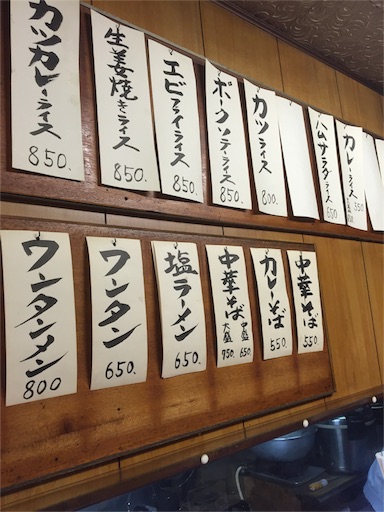 カツカレーライス
850.
生姜焼きライス
850.
エビフライライス
850.
ポークソテーライス
850.
カツライス
800.
ハムサラダライス
650
カレーライス
550
ウンタンメン
800
ワンタン
650.
塩ラーメン
650.
中華そば
中盛 650.
大盛 750.
カレーそば
550.
中華そば
550.